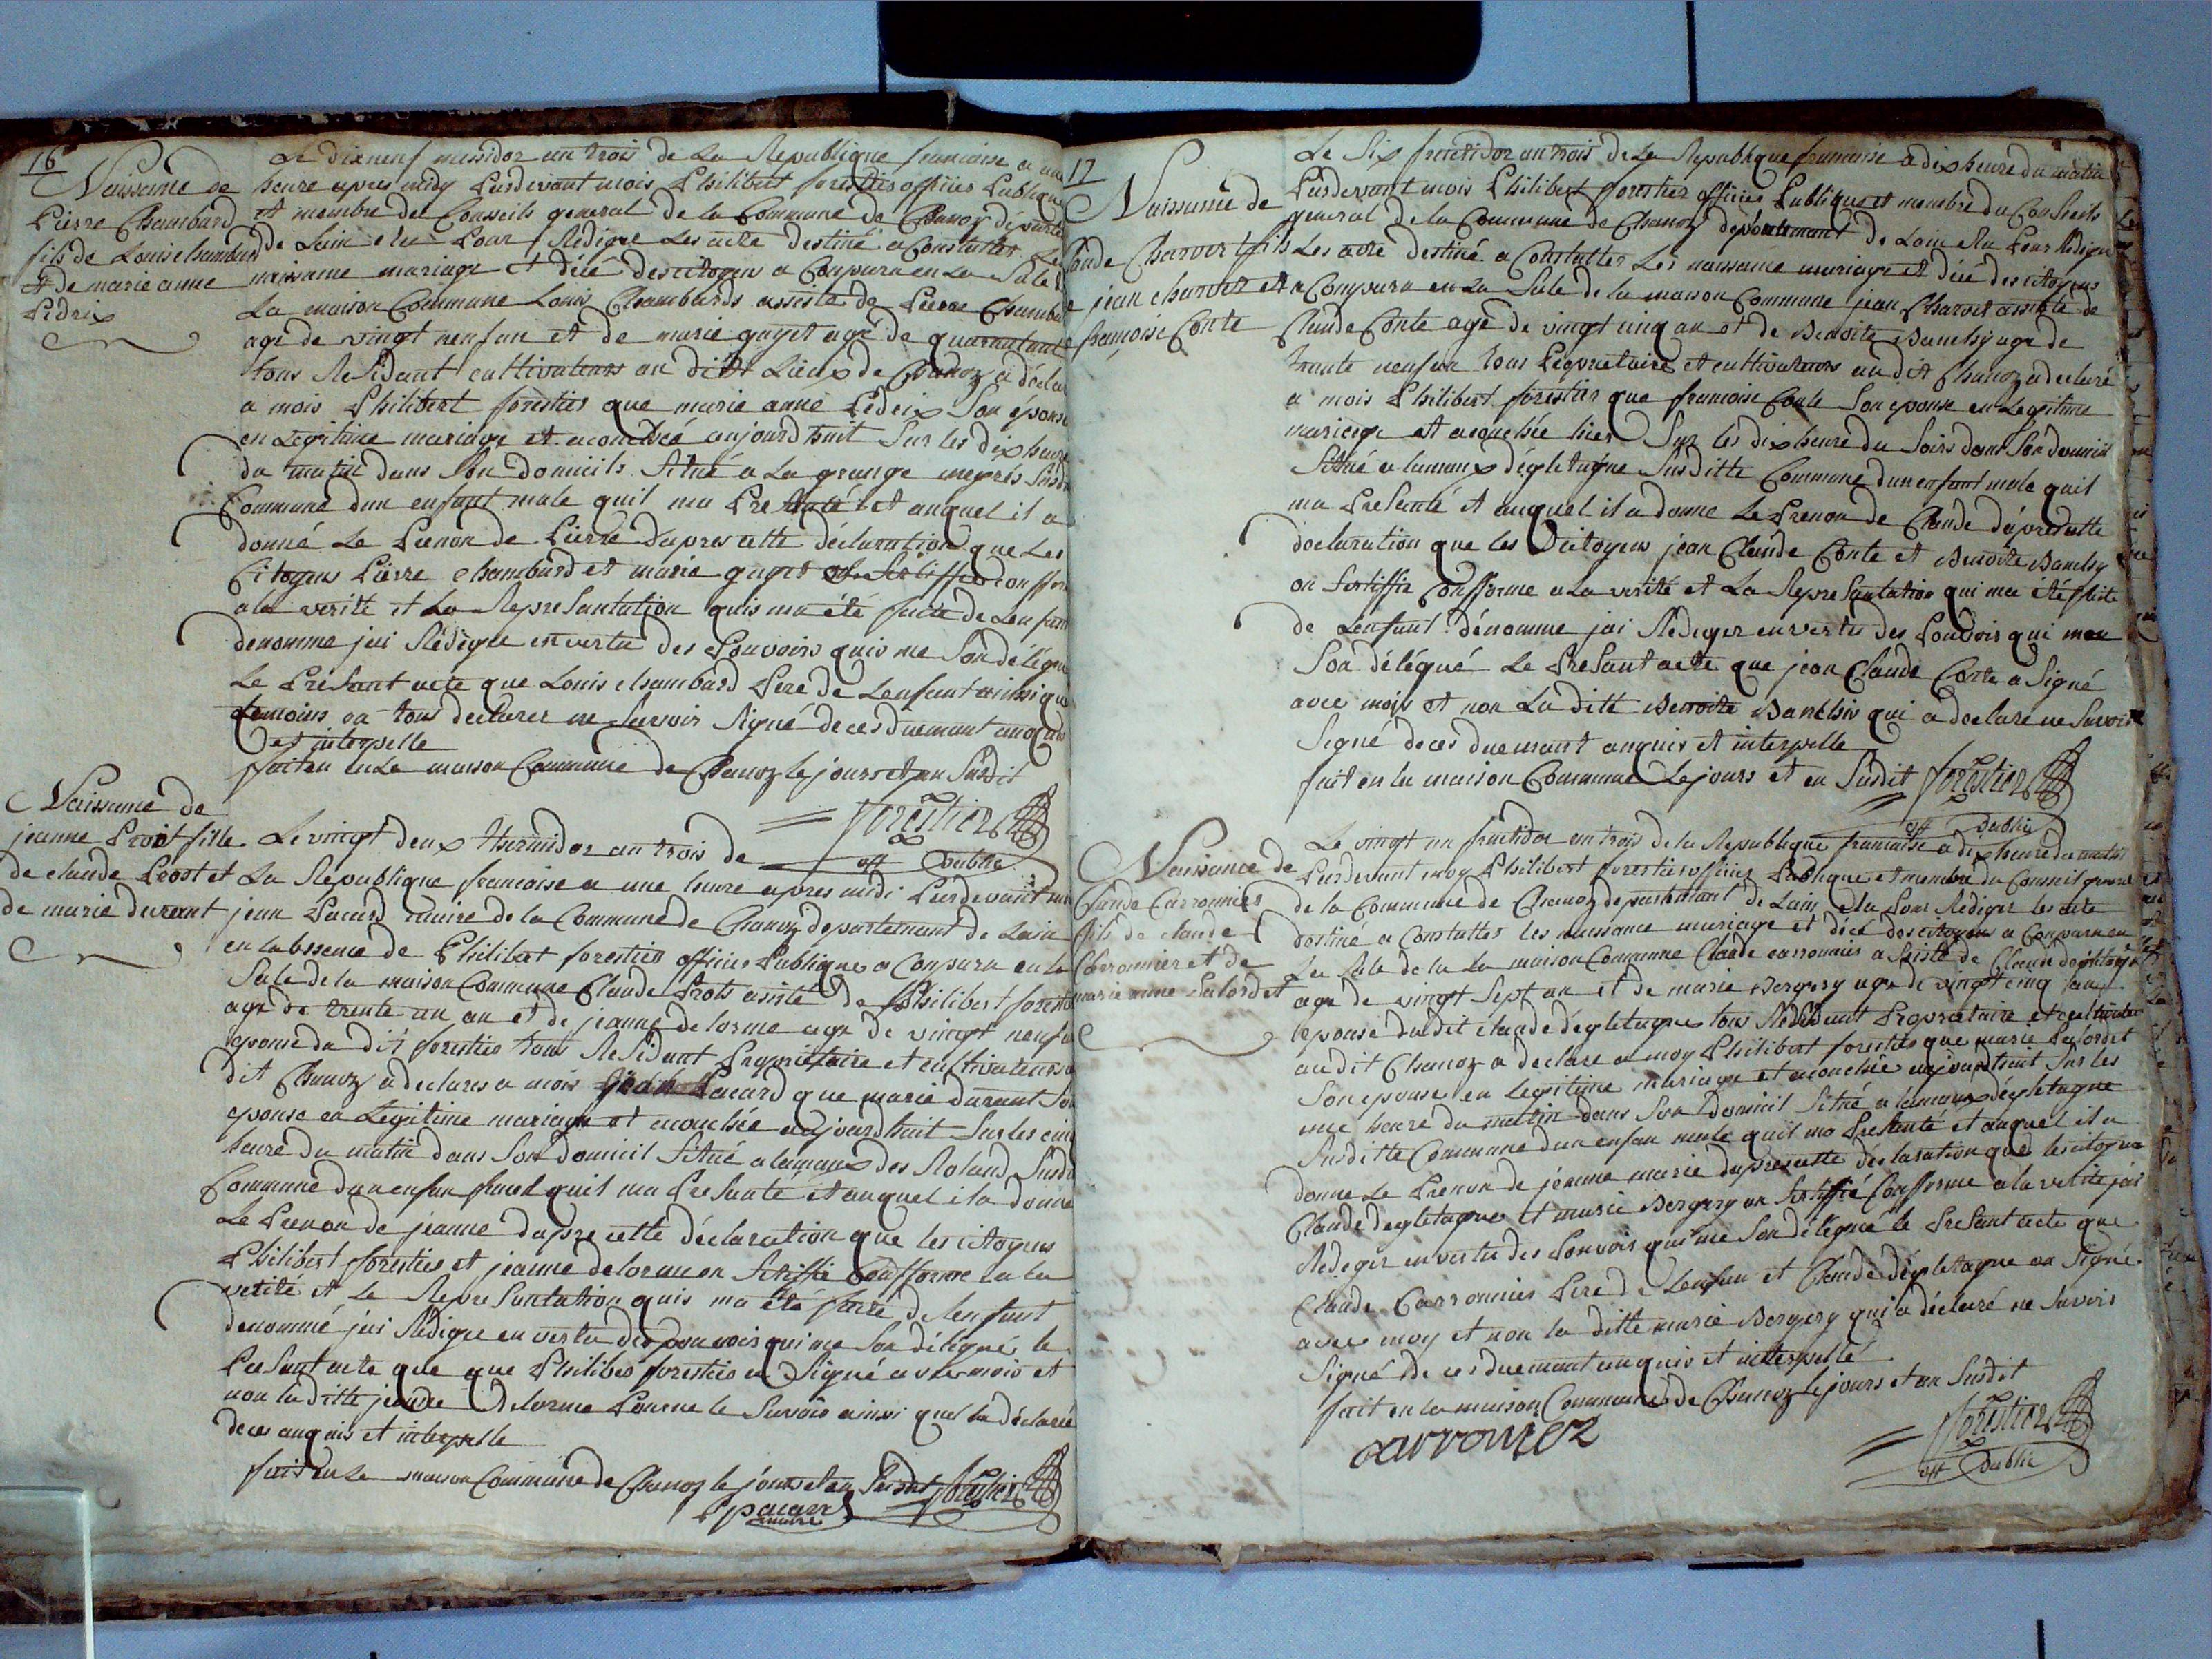 16
Naissance de
Pierre Chambard
fils de Louis chambard
et de marie anne
Pedrix
Le dixneuf messidor an trois de La Republique francaise a une
heure apres midy Pardevant mois Philibert forestier officier Publique
et membre du Conseils general de la Commune de Chanoz départe
de Lain elu Pour Rédiger Les acte destiné a Constatter Les
naissance mariage et décé des citoyens a Comparu en La Sale de
La maison Commune Louis Chambards assisté de Pierre Chambar
agé de vingt neuf an et de marie gayet agé de quarantant
tous Residant cultivateurs au dit Lieux de Chanoz a déclar
a mois Philibert forestier que marie anne Pedrix Son épouse
en Legitime mariage et acouchéé aujourdhuit Sur les dix heure
du matin dans Son domicils Situé a La grange megrés Susdi
Commune dun enfant male quil ma Presanté et auquel il a
donné Le Prenon de Pierre dapres cette déclaration que Les
Citoyens Pierre Chambard et marie gayet on Sertiffié Confor
a la verité et La Represantation quis ma été faite de Lenfant
denomme jai Rédigée en vertu des Pouvoirs quis me Son délégué
Le Présant acte que Louis chambard Pere de Lenfant ainssi que
temoins on tous declarer ne Savoir Signé de ces duemant anquis
et interpelle
fait en La maison Commune de Chanoz le jours et an Susdit
forestier
off Public
Naissance de
jeanne Prost fille
de claude Prost et
de marie durant
Le vingt deux thermidor an trois de
La Republique francaise a une heure apres midi Pardevant moi
jean Pacard maire de la Commune de Chanoz departement de Lain
en labssence de Philibert forestier officier Publique a Comparu en La
Sale de la maison Commune Claude Prots asisté de Philibert foresti
agé de trente un an et de jeanne delorme age de vingt neuf an
epouse du dit forestier tous Residant Propriétaire et cultivateurs a
dit Chanoz a declarer a mois jean Pacard que marie durant Son
epouse en Legitime mariage et acouchée aujourdhuit Sur les cinq
heure du matin dans Son domicil Situé a lamaux des Roland Susdi
Commune dun enfan femel quil ma Presanté et auquel il a donné
Le Prenon de jeanne dapre cette déclaration que les citoyens
Philibert forestier et jeanne delorme on Sertiffié Conforme a la
vérité et La Represantation quis ma été faite de Lenfant
denommé jai Rédigée en vertu des pouvoirs qui me Son délégué le
Presant acte que que Philiber forestier a Signé avec mois et
non la ditte jeanne delorme Pour ne le Savoir ainsi quel la déclarée
de ces anquis et interpelle
fait en La maison Commune de Chanoz le jours et an Susdit forestier
pacard
maire
17
Naissance de
Claude Charvet fils
de jean charvet et
de francoise Conte
Le Six fructidor an trois de La Republique francaise a dix heure du matin
Pardevant mois Philibert forestier officier Publique et membre du Conseils
general de la Commune de Chanoz département de Lain elu Pour Rédiger
Les acte destiné a Constatter Les naissance mariage et décé des citoyens
a Comparu en La Sale de la maison Commune jean Charvet assisté de
Claude Conte agé de vingt cinq an et de Benoite Banchy age de
trante neuf an tous Propriétaire et cultivateurs au dit Chanoz a declaré
a mois Philibert forestier que francoise Conte Son epouse en Legitime
mariage et acouchée hier Sur les dix heure du Soirs dans Son domicil
Situé a lamaux dégletagne Susditte Commune dun enfant male quil
ma Presanté et auquel il a donne Le Prenon de Claude dapres cette
declaration que les Citoyens jean Claude Conte et Benoite Banchy
on Sertiffié Confforme a La verité et La Represantation qui ma été faite
de Lenfant dénomme jai Rédeger en vertu des Pouvoirs qui me
Son délégué Le Presant acte que jean Claude Conte a Signé
avec mois et non La dite Benoite Banchy qui a declare ne Savoir
Signé de ces duemant anquis et interpelle
fait en La maison Commune Le jours et an Susdit forestier
off Public
Naissance de
Claude Carronnier
fils de claude
Carronnier et de
marie anne Palordet
Le vingt un fructidor an trois de la Republique francaise a dix heure du matin
Pardevant moy Philibert forestier officier Publique et membre du Conseil general
de la Commune de Chanoz departemant de Lain elu Pour Rediger les acte
destiné a Constatter les naissance mariage et décé des citoyens a Comparu en
La Sale de la La maison Commune Claude carronnier asisté de Claude degletagne
age de vingt Sept an et de marie Bergery age de vingt cinq an
epouse dudit claude dégletagne tous Residant Propriétaire et cultivateur
au dit Chanoz a declare a moy Philibert forestier que marie Palordet
Son epouse en Legitime mariage et acouchée aujourdhuit Sur les
une heure du matin dans Son domicil Situé a lamaux dégletagne
Susditte Commune dun enfan male quil ma Presanté et auquel il a
donne Le Prenon de jéanne marie dapres cette declaration que les citoyens
Claude degletagne et marie Bergery on Sertiffié Confforme a la vérité jai
Rédeger en vertu des Pouvoirs qui me Son délégué le Presant acte que
Claude Carronnier Pere de Lenfan et Claude dégletagne on Signé
avec moy et non la ditte marie Bergery qui a déclaré ne Savoir
Signé de ces duemant anquis et interpellé
fait en la maison Commune de Chanoz le jours et an Susdit
carronier
forestier
off Public